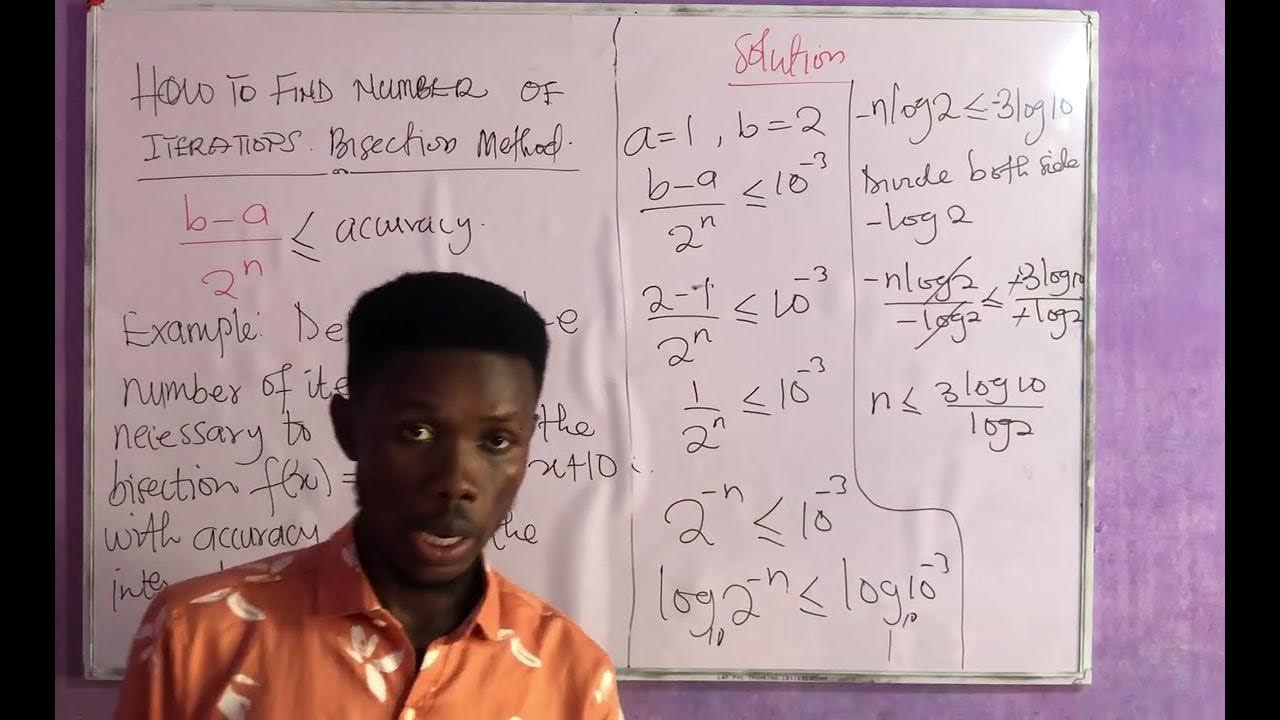 HOW TO FIND NUMBER OF
ITERATIOPS. Bisection Method.
b-a / 2^n ≤ accuracy.
Example: De e
number of ite
necessary to the
bisection f(x) = x+10
with accuracy the
inte
Solution
a=1, b=2
b-a / 2^n ≤ 10^-3
2-1 / 2^n ≤ 10^-3
1 / 2^n ≤ 10^-3
2^-n ≤ 10^-3
log₁₀ 2^-n ≤ log₁₀ 10^-3
-nlog2 ≤ -3log10
Divide both side
-log2
-nlog2 / -log2 ≤ +3log10 / +log2
n ≤ 3log10 / log2